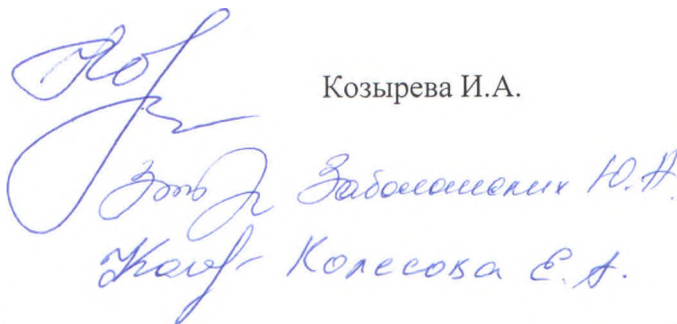 Козырева И.А.
Заболотских Ю.Н.
Колесова Е.А.